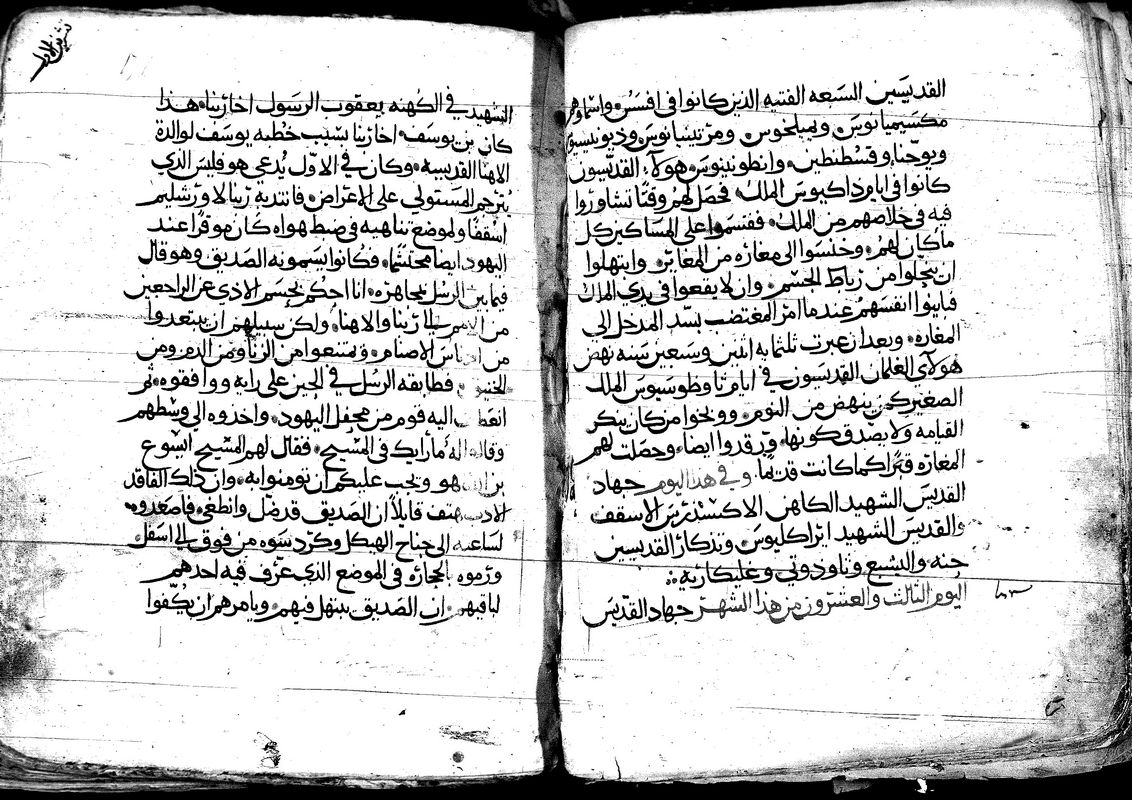 القديسين السبعه الفتيه الذين كانوا في افسس٠ واسماوهم
مكسيميانوس ويمبلخوس ومرتينيانوس وذيونيسيوس
ويوحنا وقسطنطين٠ وانطونينوس٠ هولاء القديسون
كانوا في ايام ذاكيوس الملك٠ فحصل لهم وقتا تشاوروا
فيه في خلاصهم من الملك٠ فقسموا على المساكين كل
ما كان لهم٠ وخنسوا الى مغاره من المغاير٠ وابتهلوا
ان ينحلوا من رباط الجسم٠ وان لا يقعوا في يدي الملك
فانيوا انفسهم عندما امر المغتصب بسد المدخل الى
المغاره٠ وبعد ان عبرت ثلثمايه اثنين وسبعين سنه نهض
هولاي الغلمان القديسون في ايام ثاوظوسيوس الملك
الصغير كمن ينهض من النوم٠ ووبخوا من كان ينكر
القيامه ولا يصدق كونها٠ ورقدوا ايضا٠ وحصلت لهم
المغاره قبرا كما كانت قديما٠ وفي هذا اليوم جهاد
القديس الشهيد الكاهن الاكسندرس الاسقف
والقديس الشهيد ايراكليوس وتذكار القديسين
حنه واليشبع وثاوذوتي وغليكاريه
اليوم الثالث والعشرون من هذا الشهر جهاد القديس
تشرين الاول
الشهيد في الكهنه يعقوب الرسول اخا ربنا٠ هذا
كان بن يوسف٠ اخا ربنا بسبب خطبه يوسف لوالدة
الاهنا القديسه٠ وكان في الاول يدعي هو فليس الذي
يترجم المستولي على الاعراض٠ فانتدبه ربنا لاورشليم
اسقفا ولموضع تناهيه في ضبط هواه كان موقرا عند
اليهود ايضا محتشما٠ فكانوا يسمونه الصديق وهو قال
فيما بين الرسل مجاهره٠ انا احكم بحسم الاذي عن الراجعين
من الامم الى ربنا والاهنا٠ ولكن سبيلهم ان يبتعدوا
من انجاس الاصنام٠ ويمتنعوا من الزنا ومن الدم ومن
المخنوق٠ فطابقه الرسل في الحين على رايه ووافقوه٠ ثم
انعطف اليه قوم من محفل اليهود٠ واخذوه الى وسطهم
وقالوا له ما رايك في المسيح٠ فقال لهم المسيح ايسوع
بن الله هو ويجب عليكم ان تومنوا به٠ وان ذلك الفاقد
الادب هتف قايلا ان الصديق قد ضل وانطغي٠ فاصعدوه
لساعته الى جناح الهيكل وكردسوه من فوق الى اسفل
ورموه بالحجاره في الموضع الذي عرف فيه احدهم
لباقيهم٠ ان الصديق يبتهل فيهم٠ ويامرهم ان يكفوا